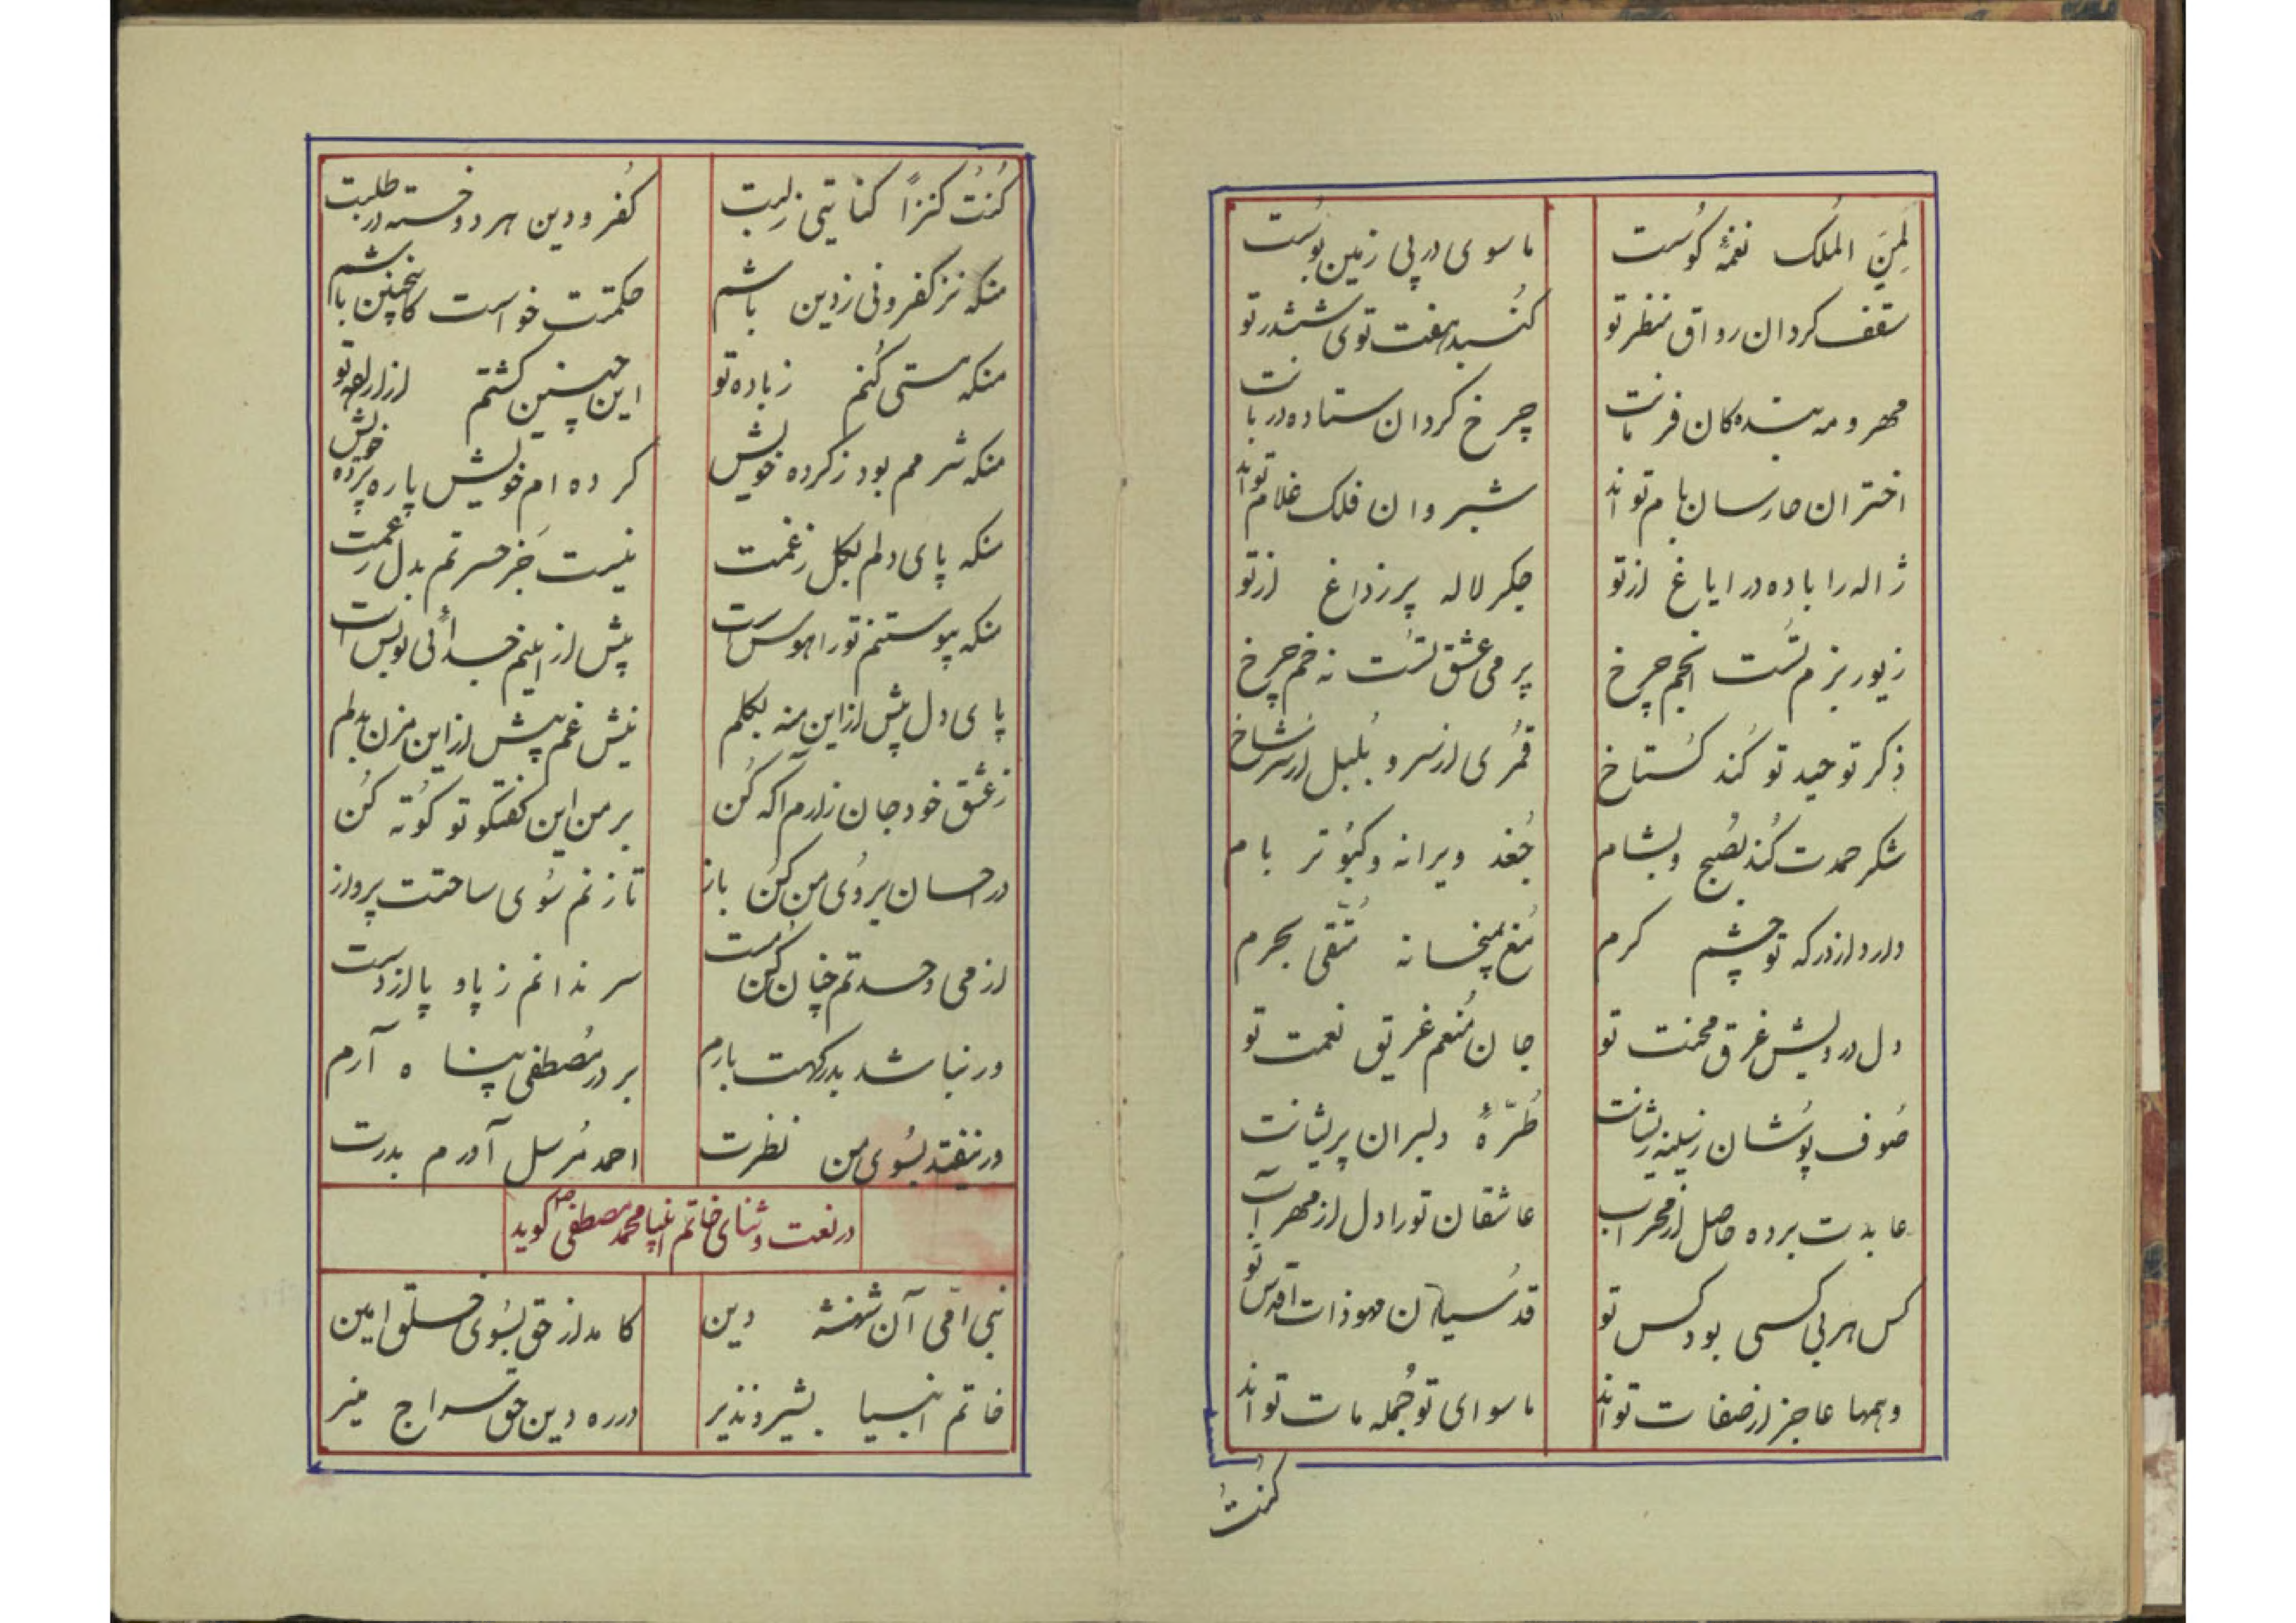 لِمَنِ الملک نغمهٔ کوُست ما سوی در پی زمین بوُست
سقف کردان رواق منظر تو کنُبد هفت توی ششدر تو
مهر و مه بنده کان فرمانت چرخ کردان ستاده در بانت
اختران حارسان بام تواند شبروان فلک غلام تواند
ژاله را باده در ایاغ از تو جکر لاله پر ز داغ از تو
زیور بزم تسُت انجم چرخ پر می عشق تسُت نه خم چرخ
ذکر توحید تو کُند کسُتاخ قمُری از سر و بُلبل از سر شاخ
شکر حمدت کُند بصُبح و بشام جُغد ویرانه و کبوُتر بام
دارد از درکه تو چشم کرم مُغ بمیخانه مُتّقی بحرم
دل درویش غرق محنت تو جان مُنعم غریق نعمت تو
صُوف پوُشان ز سینه ریشانت طُرّهٔ دلبران پریشانت
عابدت برده حاصل از محراب عاشقان تو را دل از مهر آب
کس هر بی کسی بود کس تو قدسُیان محو ذات اقدس تو
وهمها عاجز از صفات تواند ما سوای تو جُمله مات تواند
کُنتُ
کُنتُ کنزاً کنایتی ز لبت کُفر و دین هر دو خسته در طلبت
منکه نز کفر و نی ز دین باشم حکمتت خواست کاینچنین باشم
منکه مستی کُنم ز باده تو این چنین کشتم از اراده تو
منکه شرمم بود ز کرده خویش کرده ام خویش پاره پرده خویش
منکه پای دلم بکل ز غمت نیست جَز حسرتم بدل ز غمت
منکه پیوستنم تو را هوسَست پیش از اینم جدائی تو بس است
پای دل پیش از این منه بکلم نیش غم بیش از این مزن بدلم
ز عشق خود جان زارم آکه کُن بر من این کفتکو تو کوُته کُن
در احسان بروُی من کُن باز تا زنم سُوی ساحتت پرواز
از می وحدتم چنان کُن مست سر ندانم ز پا و پا از دست
ور نباشد بدرکهت بارم بر در مصُطفی پناه آرم
ور نیفتد بسُوی من نظرت احمد مُرسل آورم بدرت
در نعت و ثنای خاتم انبیا محمد مصطفی ص کوید
نبی امّی آن شهنشه دین کامد از حق بسُوی خلق امین
خاتم انبیا بشیر و نذیر در ره دین حق سراج منیر